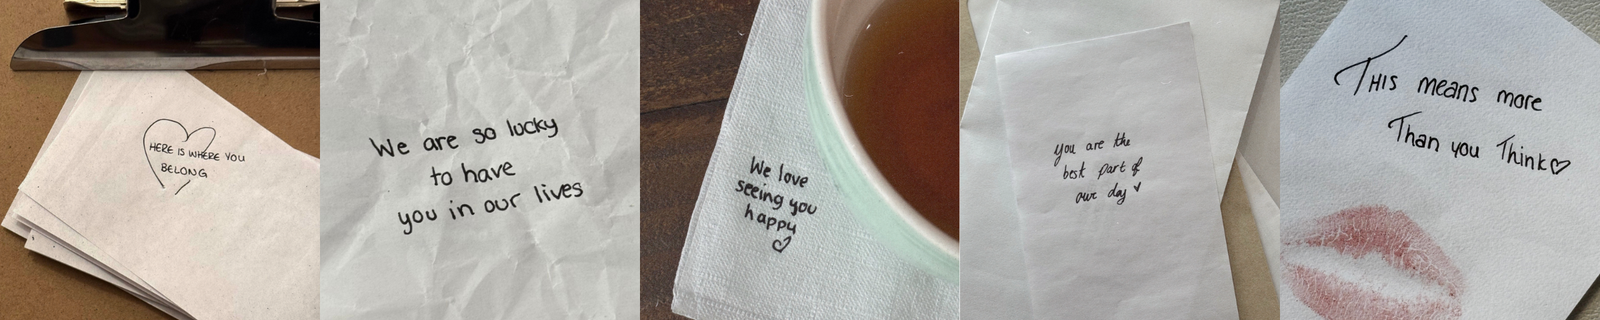 HERE IS WHERE YOU
BELONG
We are so lucky
to have
you in our lives
We love
seeing you
happy
you are the
best part of
our day
THIS means more
Than you Think